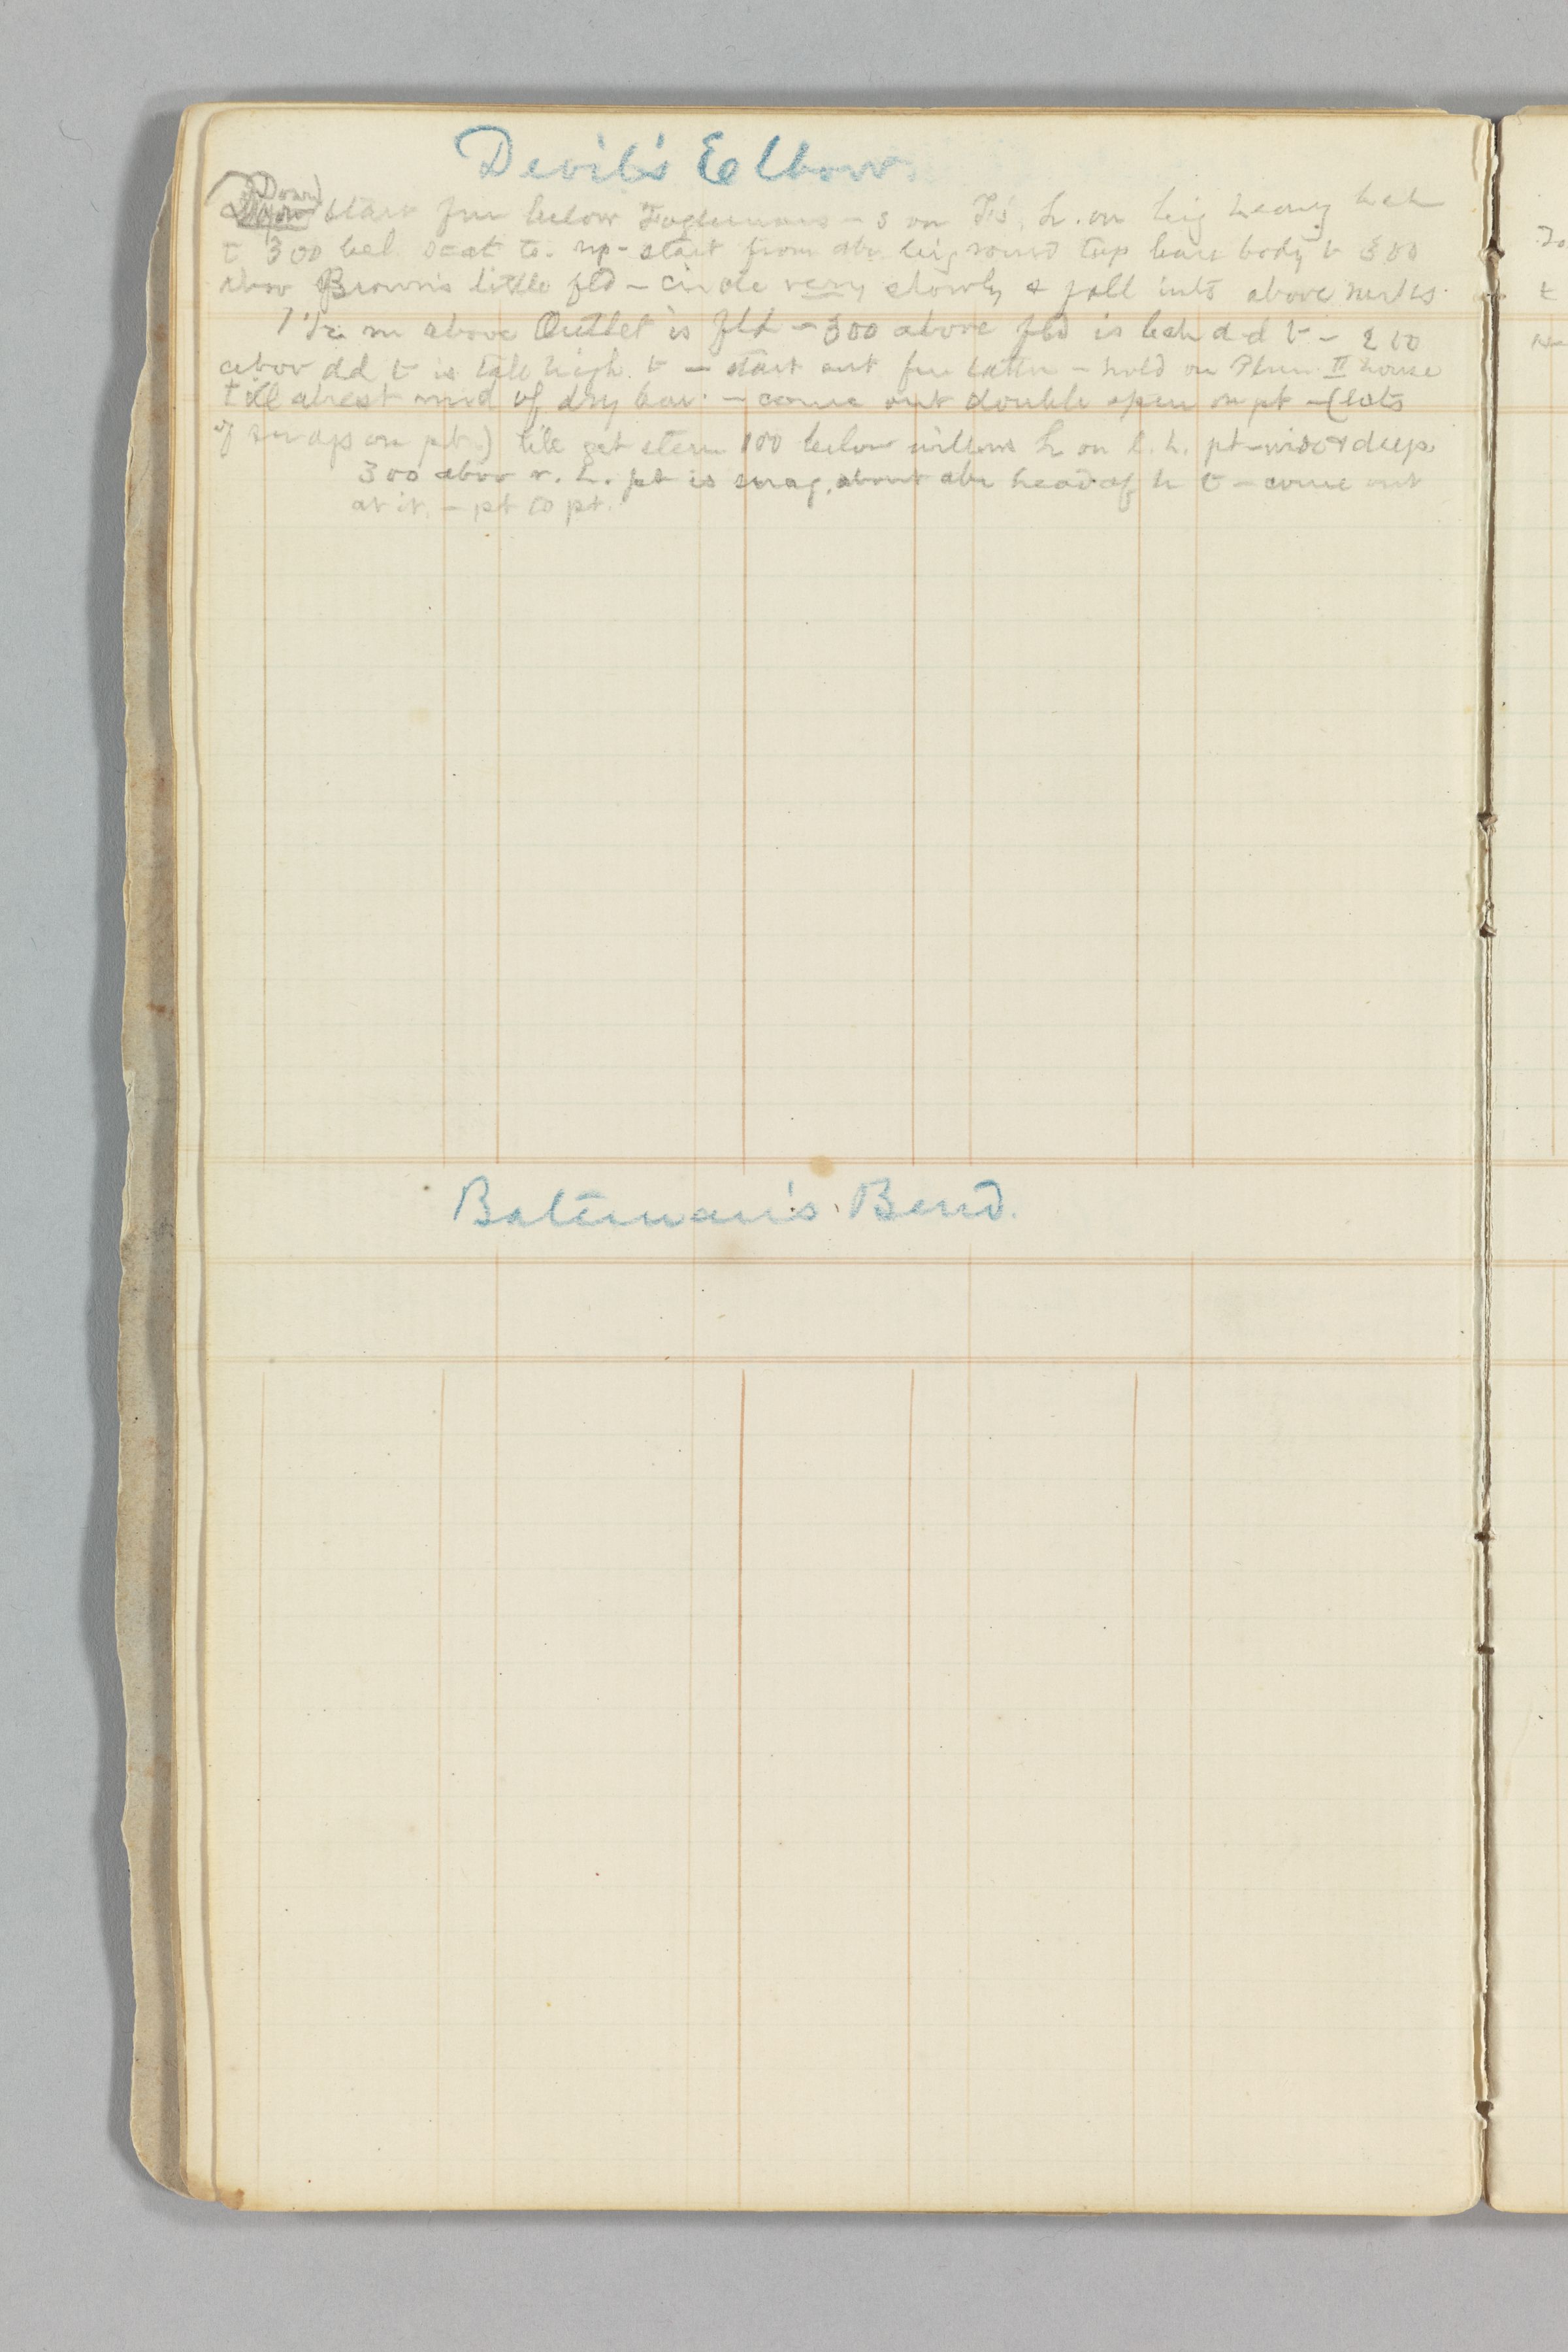 Devil's Elbow.
(Down) start fm below Fogleman's - s on h. on big heavy beh
t 300 bel up - start from abv big round top bare body t 300
abov Brown's little fld - circle very slowly & fall into above
1 1/2 m above Outlet is fld - 300 above fld is beh d d t - 200
abov dd t is tall high t - start out fm latter - hold on Plum II house
till abrest mid of dry bar - come out double open on pt - (lots
of snags on pt.) till get stern 100 below willows h on l. h. pt - wide & deep.
300 abov r. h. pt is snag, about abv head of h t - come out
at it. - pt to pt.
Bateman's Bend.